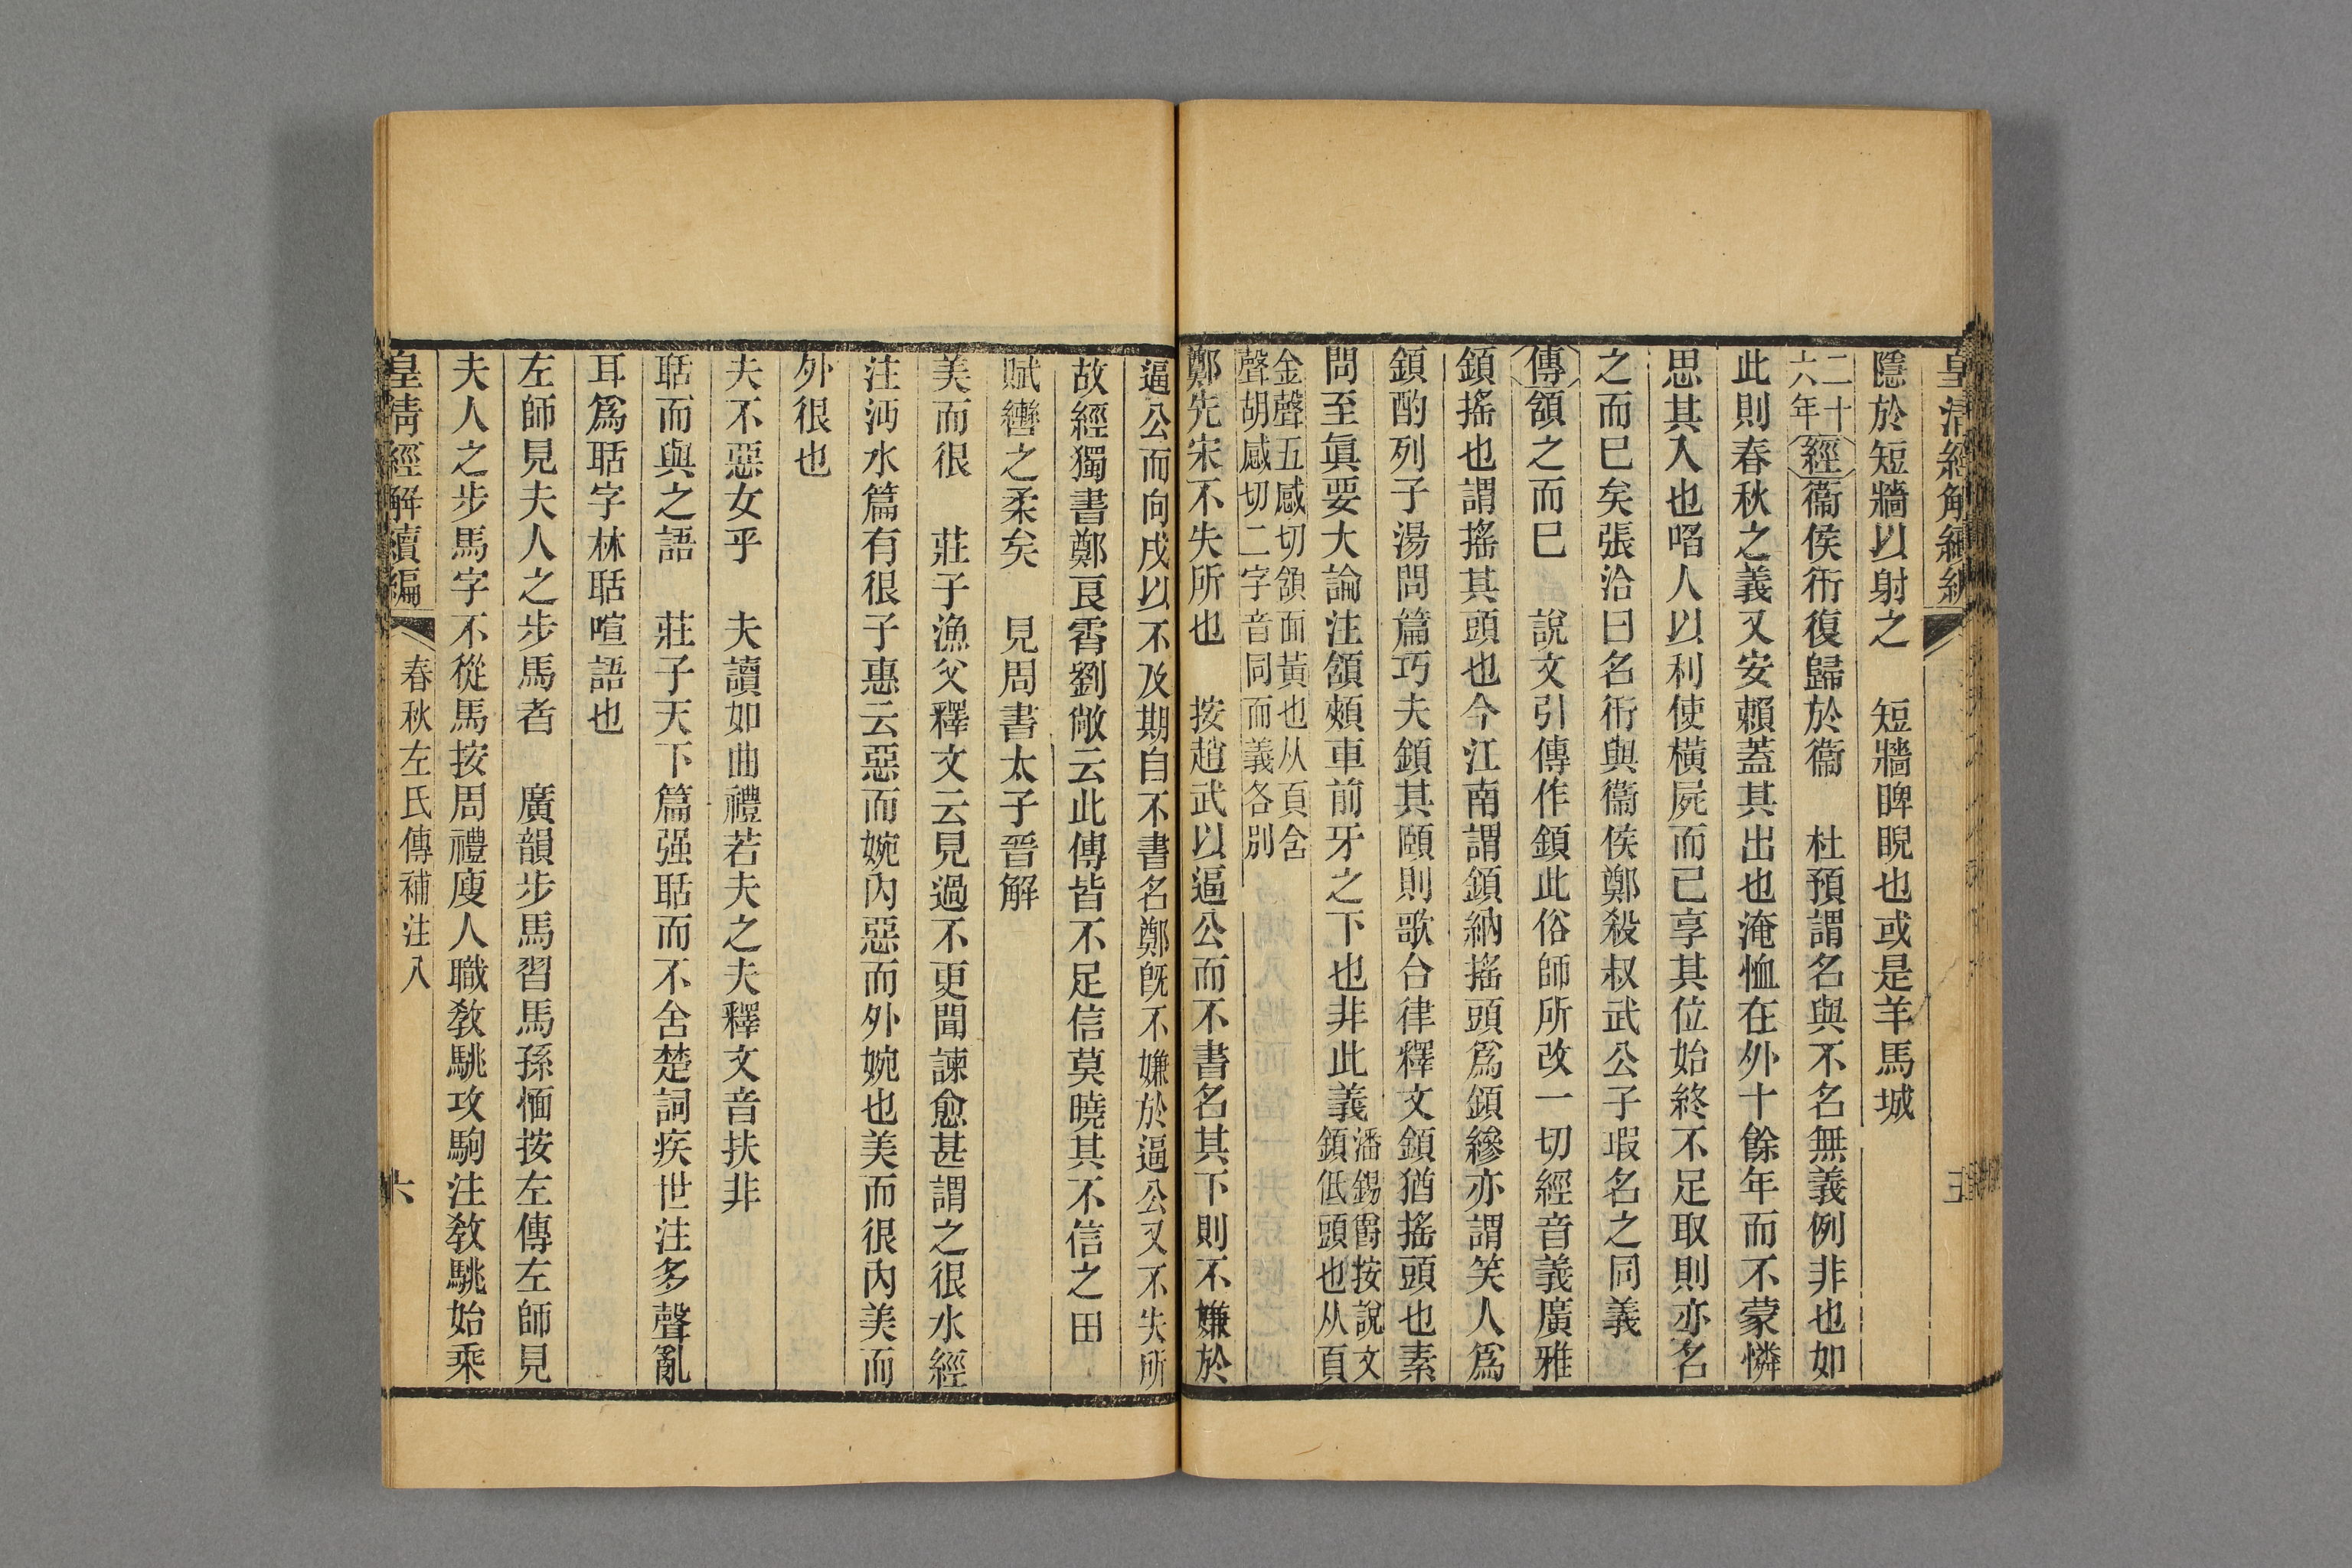 隱於短牆以射之　短牆睥睨也或是羊馬城
二十六年經衞侯衎復歸於衞　杜預謂名與不名無義例非也如
此則春秋之義又安賴蓋其出也淹恤在外十餘年而不蒙憐
思其入也啗人以利使橫屍而已享其位始終不足取則亦名
之而巳矣張洽曰名衎與衞侯鄭殺叔武公子瑕名之同義
傳頷之而巳　說文引傳作顉此俗師所改一切經音義廣雅
顉搖也謂搖其頭也今江南謂顉納搖頭爲顉縿亦謂笑人爲
顉酌列子湯問篇巧夫顉其頤則歌合律釋文顉猶搖頭也素
問至眞要大論注頷頰車前牙之下也非此義潘錫爵按說文顉低頭也从頁
金聲五感切頷面黃也从頁含聲胡感切二字音同而義各別
鄭先宋不失所也　按趙武以逼公而不書名其下則不嫌於
逼公而向戌以不及期自不書名鄭旣不嫌於逼公又不失所
故經獨書鄭良霄劉敞云此傳皆不足信莫曉其不信之由
賦轡之柔矣　見周書太子晉解
美而很　莊子漁父釋文云見過不更聞諫愈甚謂之很水經
注沔水篇有很子惠云惡而婉內惡而外婉也美而很內美而
外很也
夫不惡女乎　夫讀如曲禮若夫之夫釋文音扶非
聒而與之語　莊子天下篇强聒而不舍楚詞疾世注多聲亂
耳爲聒字林聒喧語也
左師見夫人之步馬者　廣韻步馬習馬孫愐按左傳左師見
夫人之步馬字不從馬按周禮廋人職敎駣攻駒注敎駣始乘
皇淸經解續編　春秋左氏傳補注八　六